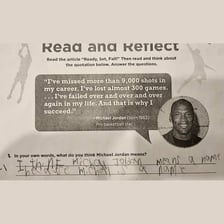 Read and Reflect
Read the article "Ready, Set, Fail!" Then read and think about
the quotation below. Answer the questions.
"I've missed more than 9,000 shots in
my career. I've lost almost 300 games.
. . . I've failed over and over and over
again in my life. And that is why I
succeed."
–Michael Jordan (born 1963)
Pro basketball star
1. In your own words, what do you think Michael Jordan means?
means a name
a name